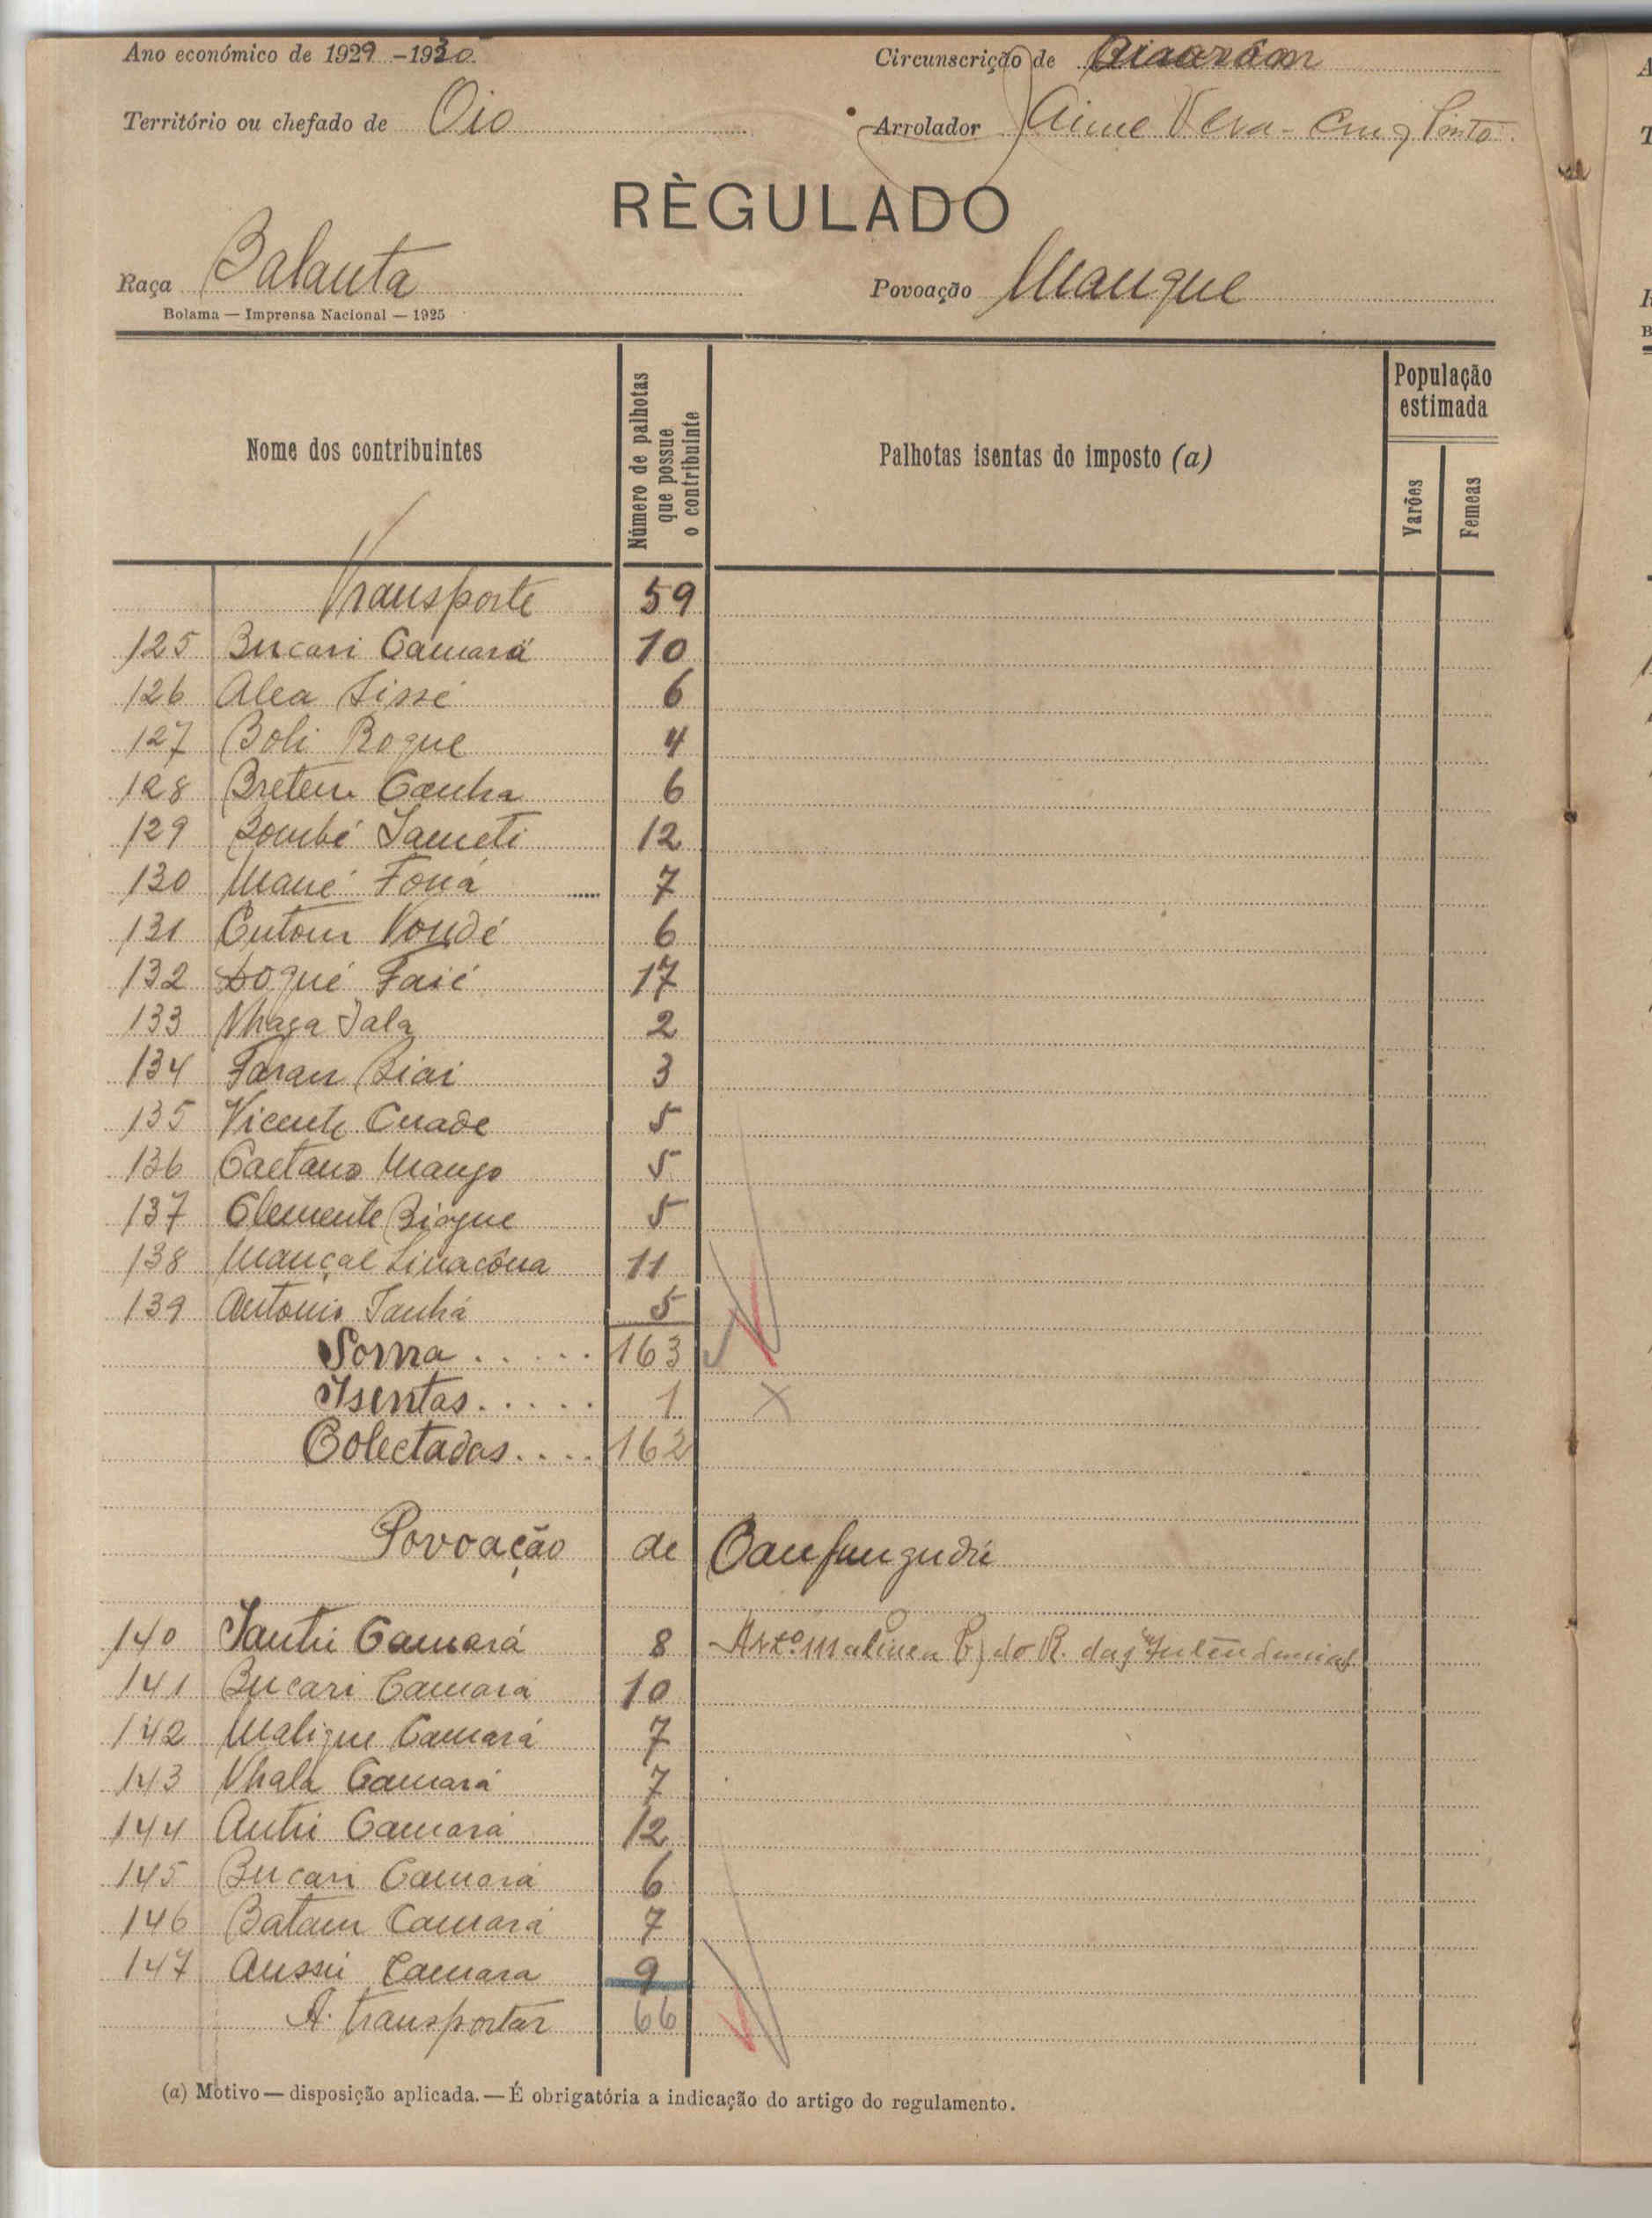 Ano económico de 1929-1930
Circunscrição de
Território ou chefado de Oio
Arrolador Aime Vera-Cruz Pinto
RÈGULADO
Raça Balanta
Povoação Manque
Bolama — Imprensa Nacional — 1925
Nome dos contribuintes
Número de palhotas que possue o contribuinte
Palhotas isentas do imposto (a)
População estimada
Varões
Femeas
Transporte 59
125 Bucari Camará 10
126 Alea Sissé 6
127 Boli Roque 4
128 Bretem Canha 6
129 Bombé Sameti 12
130 Mané Foná 7
131 Cutom 6
132 Soqué Faié 17
133 Nhaga Iala 2
134 Faran Biai 3
135 Vicente Cuade 5
136 Caetano Mango 5
137 Clemente Biague 5
138 Mançal Sinacôna 11
139 Antonio Sanhá 5
Soma ..... 163
Isentas ..... 1 X
Colectadas .... 162
Povoação de Canfungudú
140 Santú Camará 8 do R. das Intendencias
141 Bucari Camará 10
142 Malique Camará 7
143 Nhala Camará 7
144 Antú Camará 12
145 Bucari Camará 6
146 Batam Camará 7
147 Aussú Camara 9
A transportar 66
(a) Motivo — disposição aplicada. — É obrigatória a indicação do artigo do regulamento.